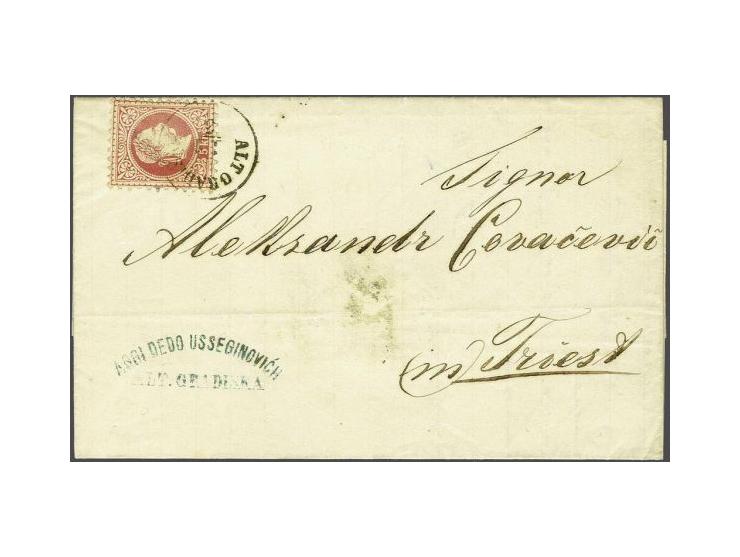 5 K
ALTGRAD
Signor
Aleksandr Covačević
in Triest
AGGI DEDO USSEGINOVICH
ALT. GRADISKA